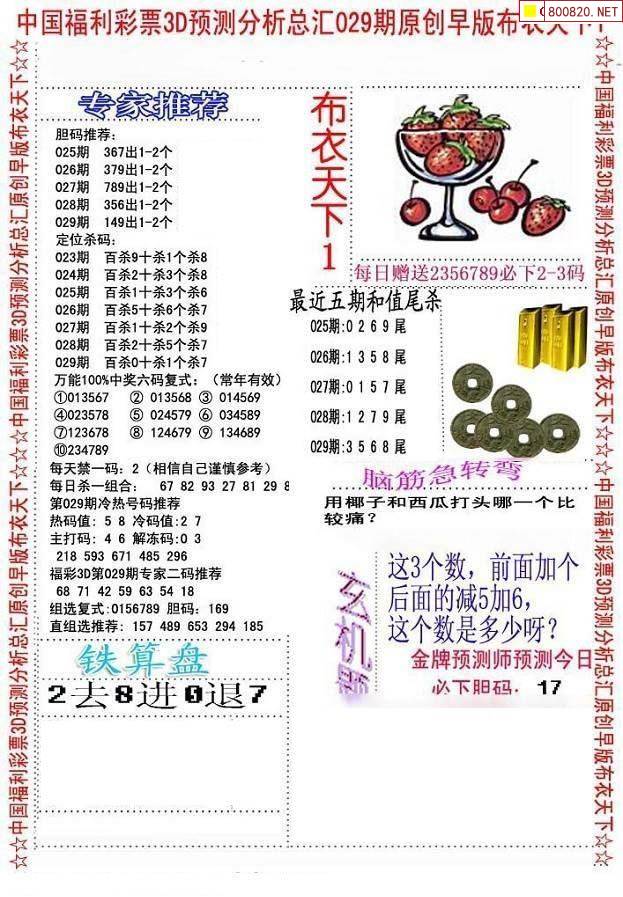 中国福利彩票3D预测分析总汇029期原创早版布衣天下1
800820.NET
☆☆中国福利彩票3D预测分析总汇原创早版布衣天下☆☆☆中国福利彩票3D预测分析总汇原创早版布衣天下☆☆
专家推荐
胆码推荐:
025期 367出1-2个
026期 379出1-2个
027期 789出1-2个
028期 356出1-2个
029期 149出1-2个
定位杀码:
023期 百杀9十杀1个杀8
024期 百杀2十杀3个杀8
025期 百杀1十杀3个杀6
026期 百杀5十杀6个杀7
027期 百杀1十杀2个杀9
028期 百杀2十杀5个杀7
029期 百杀0十杀1个杀7
万能100%中奖六码复式:(常年有效)
①013567 ② 013568 ③ 014569
④023578 ⑤ 024579 ⑥ 034589
⑦123678 ⑧ 124679 ⑨ 134689
⑩234789
每天禁一码: 2(相信自己谨慎参考)
每日杀一组合: 67 82 93 27 81 29 8
第029期冷热号码推荐
热码值: 5 8 冷码值:2 7
主打码: 4 6 解冻码:0 3
218 593 671 485 296
福彩3D第029期专家二码推荐
68 71 42 59 63 54 18
组选复式:0156789 胆码: 169
直组选推荐: 157 489 653 294 185
铁算盘
2去8进0退7
布衣天下1
每日赠送2356789必下2-3码
最近五期和值尾杀
025期:0 2 6 9 尾
026期:1 3 5 8 尾
027期:0 1 5 7 尾
028期:1 2 7 9 尾
029期:3 5 6 8 尾
脑筋急转弯
用椰子和西瓜打头哪一个比
较痛?
玄机题
这3个数, 前面加个
后面的减5加6,
这个数是多少呀?
金牌预测师预测今日
必下胆码. 17
☆☆中国福利彩票3D预测分析总汇原创早版布衣天下☆☆☆中国福利彩票3D预测分析总汇原创早版布衣天下☆☆